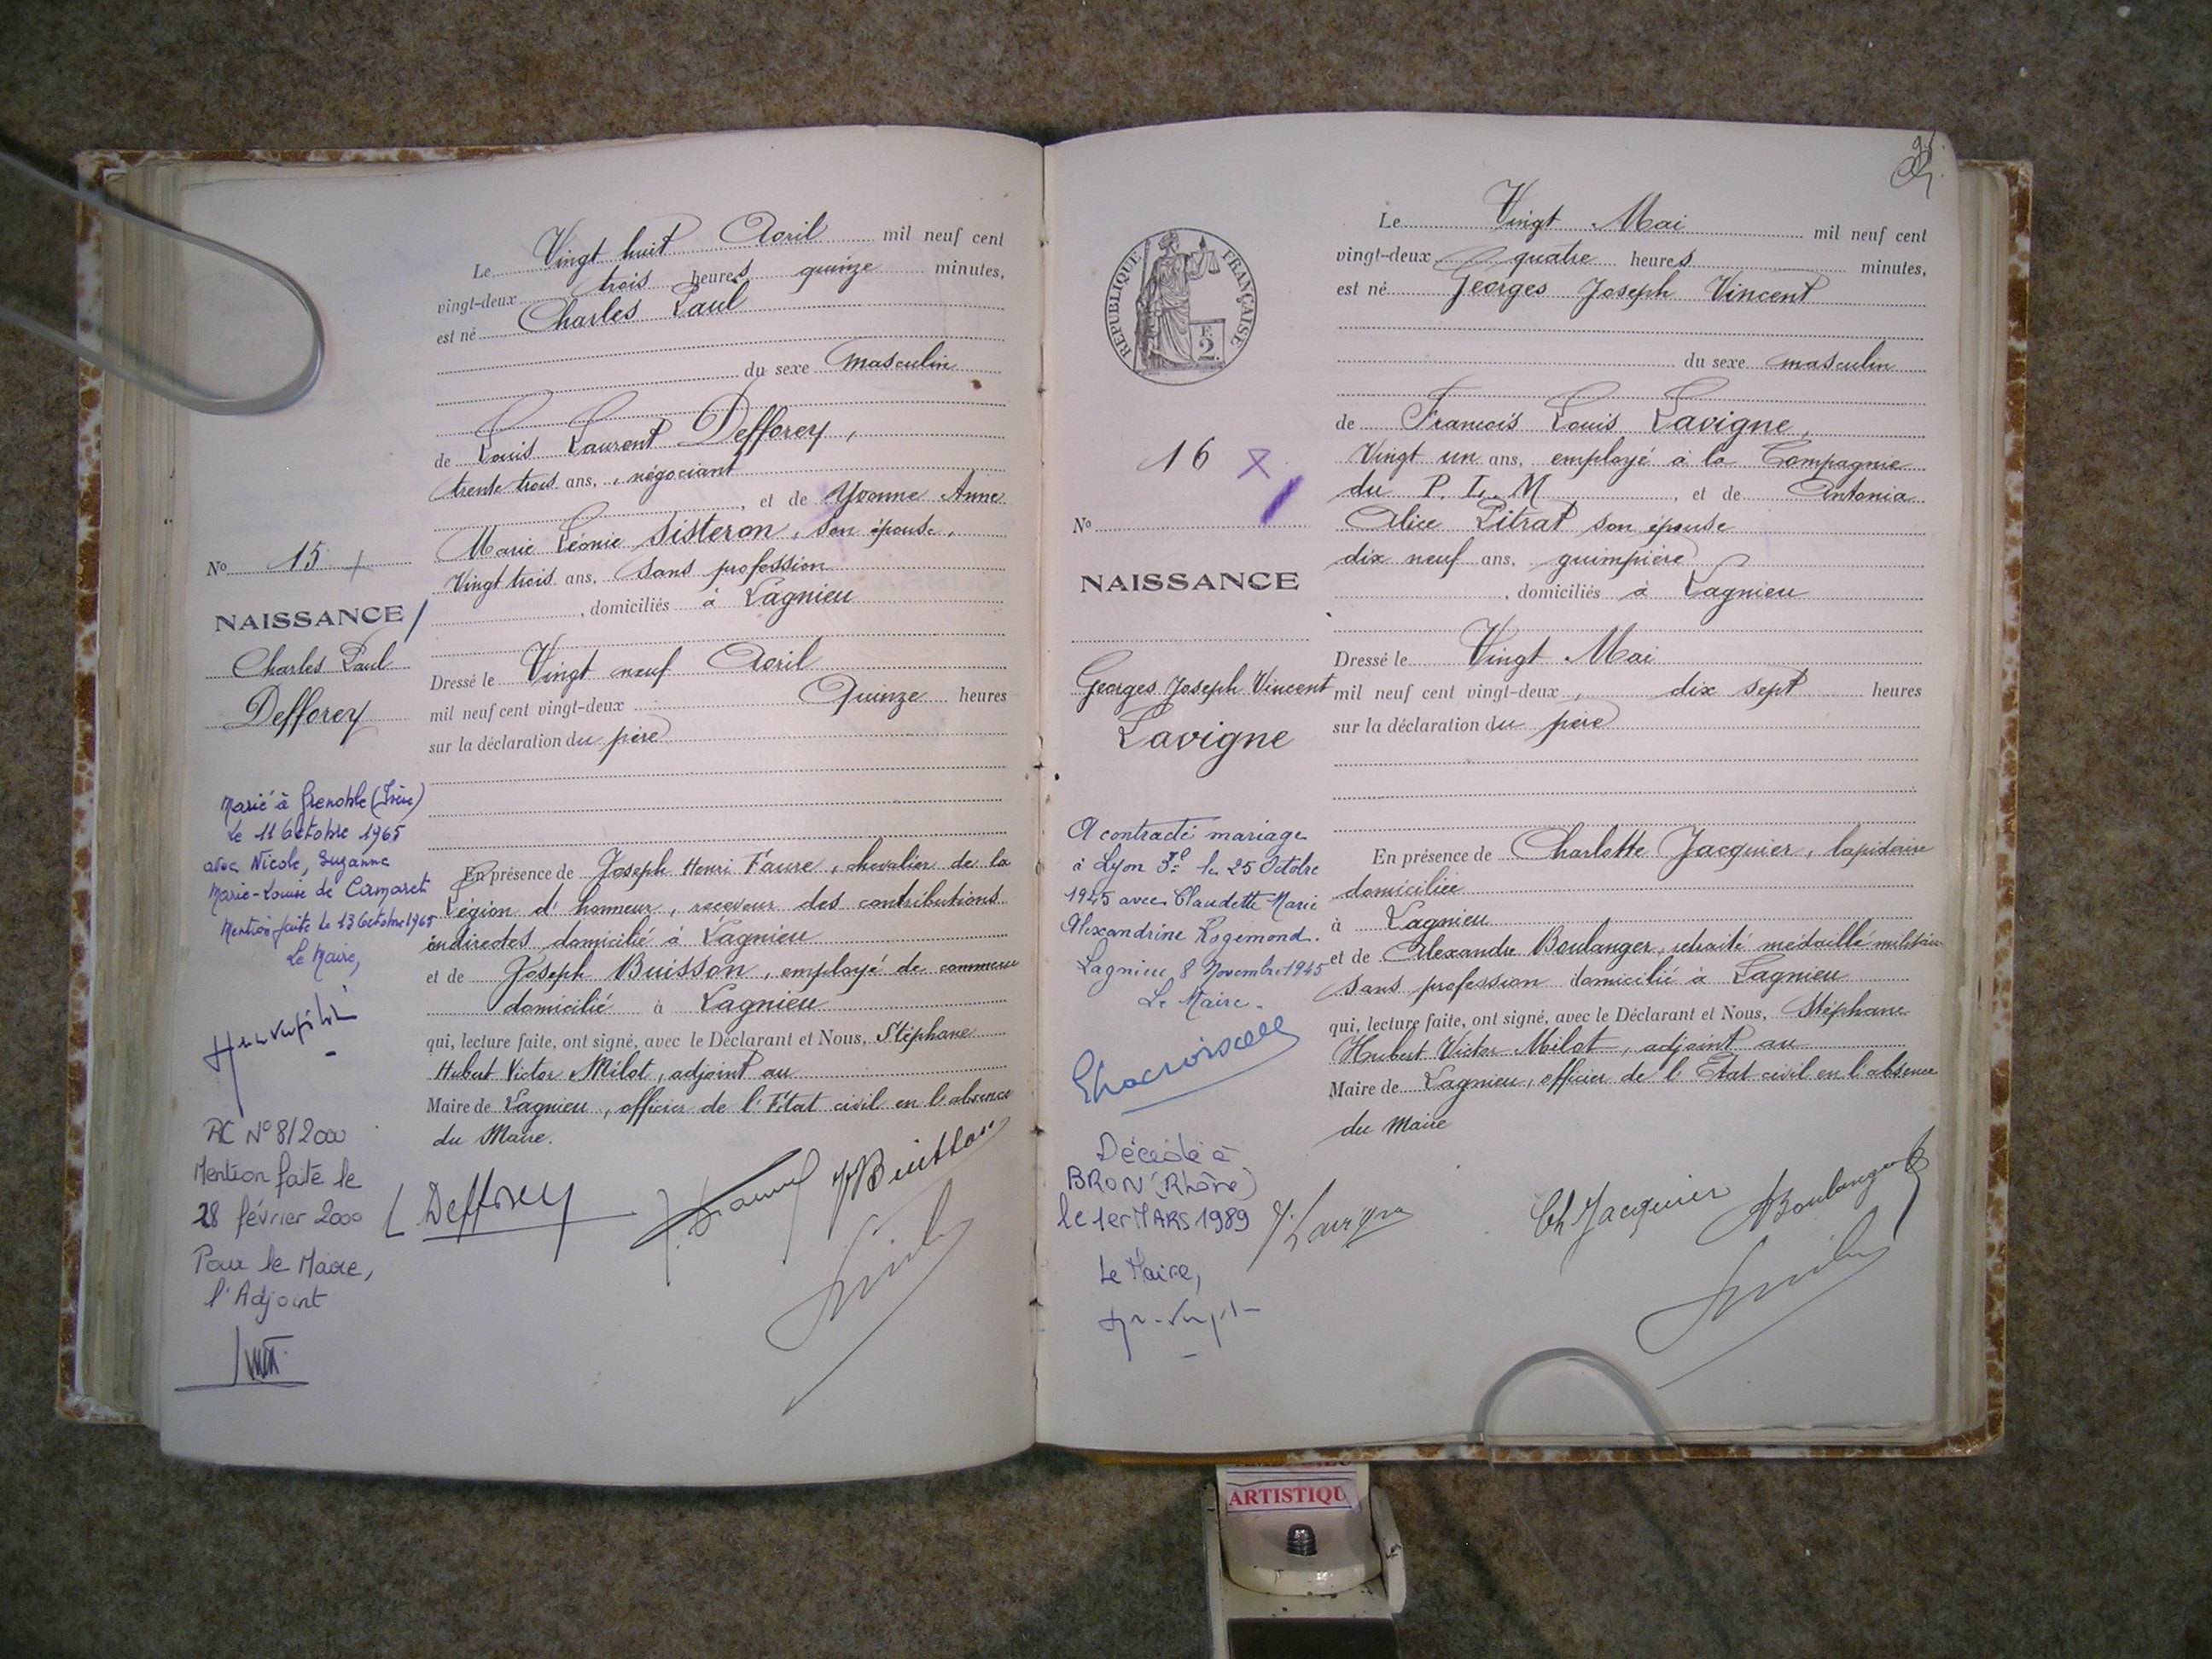 Le Vingt huit Avril mil neuf cent
vingt-deux trois heures quinze minutes,
est né Charles Paul
du sexe masculin
de Louis Laurent Defforey,
trente trois ans, négociant
, et de Yvonne Anne
Marie Léonie Sisteron, son épouse,
Vingt trois ans, sans profession
, domiciliés à Lagnieu
Dressé le Vingt neuf Avril
mil neuf cent vingt-deux Quinze heures
sur la déclaration du père
En présence de Joseph Henri Faure, chevalier de la
Légion d'honneur, receveur des contributions
indirectes domicilié à Lagnieu
et de Joseph Buisson, employé de commerce
domicilié à Lagnieu
qui, lecture faite, ont signé, avec le Déclarant et Nous, Stéphane
Hubert Victor Milot, adjoint au
Maire de Lagnieu, officier de l'Etat civil en l'absence
du Maire.
L Defforey
JBuisson
No 15
NAISSANCE
Charles Paul
Defforey
Marié à Grenoble (Isère)
Le 11 Octobre 1965
avec Nicole, Suzanne
Marie-Louise de Camaret
Mention faite le 13 Octobre 1965
Le Maire,
RC N° 8/2000
Mention faite le
28 février 2000
Pour le Maire,
l'Adjoint
RÉPUBLIQUE FRANÇAISE
2
16
No
NAISSANCE
Georges Joseph Vincent
Lavigne
A contracté mariage
à Lyon 3e le 25 Octobre
1945 avec Claudette Marie
Alexandrine Rogemond.
Lagnieu, 8 Novembre 1945
Le Maire.
Décédé à
BRON (Rhône)
le 1er MARS 1989
Le Maire,
Le Vingt Mai mil neuf cent
vingt-deux quatre heures minutes,
est né Georges Joseph Vincent
du sexe masculin
de François Louis Lavigne,
Vingt un ans, employé à la Compagnie
du P. L. M , et de Antonia
Alice Pitrat son épouse
dix neuf ans, guimpière
, domiciliés à Lagnieu
Dressé le Vingt Mai
mil neuf cent vingt-deux, dix sept heures
sur la déclaration du père
En présence de Charlotte Jacquier, lapidaire
domiciliée
à Lagnieu
et de Alexandre Boulanger, retraité médaillé militaire
sans profession domicilié à Lagnieu
qui, lecture faite, ont signé, avec le Déclarant et Nous, Stéphane
Hubert Victor Milot, adjoint au
Maire de Lagnieu, officier de l'Etat civil en l'absence
du Maire
Lavigne
Ch Jacquier
ABoulanger
ARTISTIQU